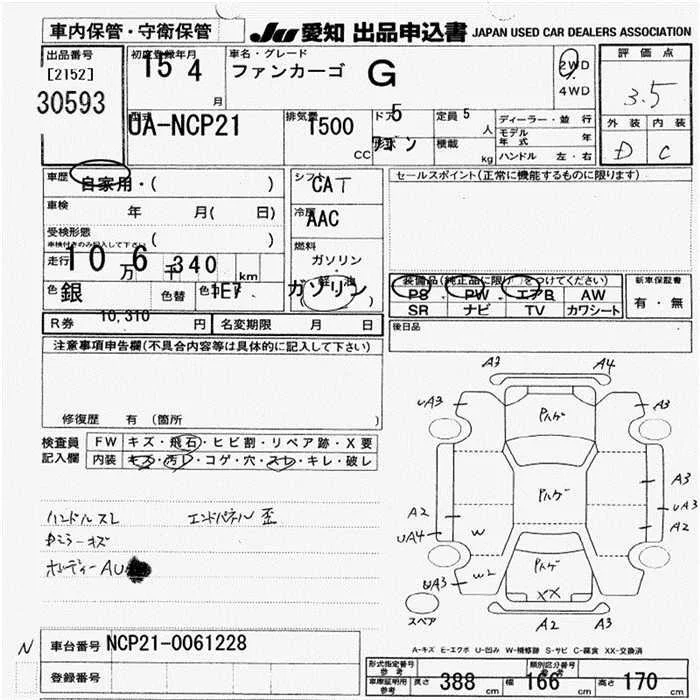 車内保管・守衛保管
JU 愛知 出品申込書 JAPAN USED CAR DEALERS ASSOCIATION
出品番号
[2152]
30593
初度登録年月
15 4
月
車名・グレード
ファンカーゴ G
2WD
4WD
評価点
3.5
外装 内装
D C
型式
UA-NCP21
排気量
1500
CC
ドア 5
形状
定員 5
人
積載
kg
ディーラー・並行
モデル年式 年
ハンドル 左・右
車歴 自家用・( )
車検 年 月( 日)
受検形態
車検付きのみ記入して下さい ( )
走行 10万 6千 340 km
色 銀 色替 色コ 1E7
R券 10,310 円 名変期限 月 日
シフト CAT
冷房 AAC
燃料
ガソリン
軽油
ガソリン
( )
セールスポイント(正常に機能するものに限ります)
装備品(純正品に限り○をつけてください)
PS PW エアB AW
SR ナビ TV カワシート
新車保証書
有・無
後日品
注意事項申告欄(不具合内容等は具体的に記入して下さい)
修復歴 有 (箇所 )
検査員記入欄
FW キズ・飛石・ヒビ割・リペア跡・X要
内装 キズ・汚レ・コゲ・穴・スレ・キレ・破レ
ハンドルスレ エンドパネル歪
Rミラーキズ
ボディーAU
A3 A4
UA3 A3
Pハゲ
Pハゲ
A3
A2 UA3
UA4 W A2
Pハゲ
UA3 W2
XX
スペア A2 A3
A-キズ E-エクボ U-凹み W-補修跡 S-サビ C-腐食 XX-交換済
N
車台番号 NCP21-0061228
登録番号
形式指定番号 参考 類別区分番号 参考
車庫証明用 参考 長さ 388 cm 幅 166 cm 高さ 170 cm